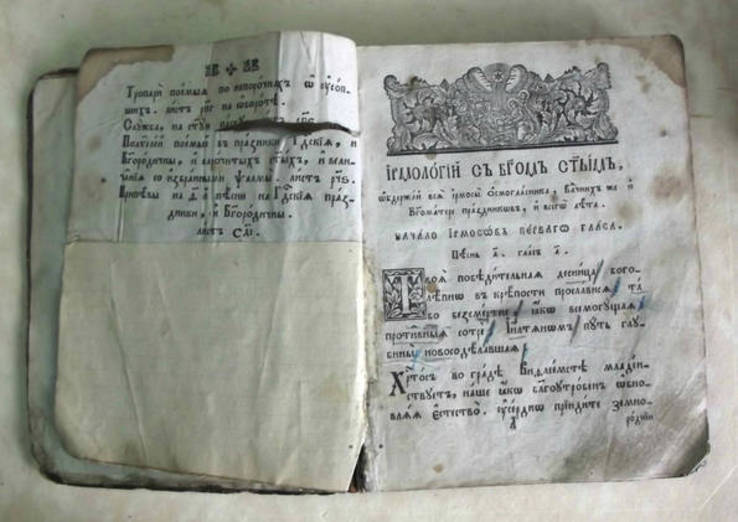 Тропарѝ поемыѧ по непорочнахъ ѿ ᲂусоп-
шихъ. листъ на ѡборотѣ.
Служба, на
Полѵелей поемый въ праздники Гдскїѧ, и
Бгородичны, и нарочитыхъ стыхъ, и вели-
чанїѧ со избранными ѱалмы. листъ
Припѣвы на д҃ й пѣсни на Гдскїѧ праз-
дники, и Бгородичны.
листъ
ІРМОЛОГІЙ СЪ БГОМЪ СТЫМЪ,
ѡбдержай всѧ ірмосы Ѻсмогласника, Влчнихъ же и
Бгоматере праздникѡвъ, и всегѡ лѣта.
НАЧАЛО ІРМОСѠВЪ ПЕРВАГѠ ГЛАСА.
Пѣснь а҃. гласъ а҃.
Твоѧ побѣдительнаѧ десница бого-
лѣпнѡ въ крѣпости прослависѧ, та
бо безсмертне, ꙗкѡ всемогущаѧ
противныѧ сотре, Іилтѧнѡмъ путь глу-
бины новосодѣлавшаѧ.
Хртосъ во градѣ Виѳлеемстѣ младен-
ствуетъ, наше ꙗкѡ благоутробенъ ѡбно-
влѧѧ естество. ᲂусерднѡ прїидите земно-
родніи